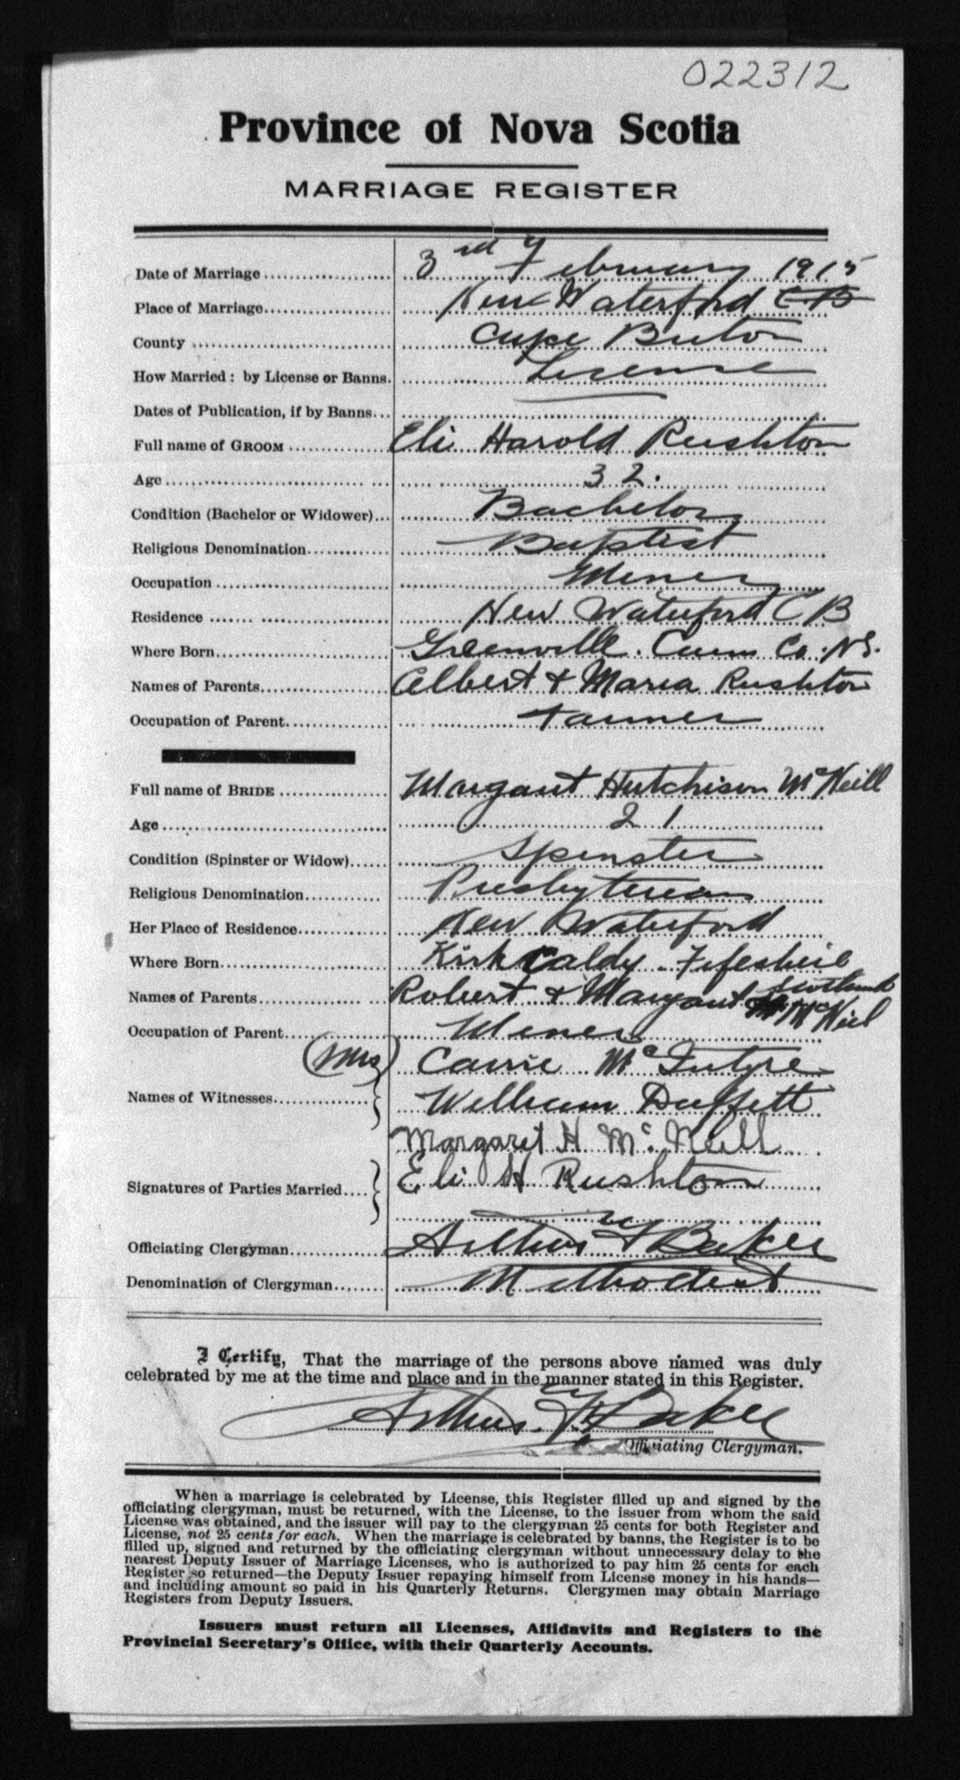 022312
Province of Nova Scotia
MARRIAGE REGISTER
Date of Marriage 3rd February 1915
Place of Marriage New Waterford C B
County Cape Breton
How Married: by License or Banns. License
Dates of Publication, if by Banns
Full name of GROOM Eli Harold Rushton
Age 32.
Condition (Bachelor or Widower) Bachelor
Religious Denomination Baptist
Occupation Miner
Residence New Waterford C B
Where Born Greenville. Cum Co. N.S.
Names of Parents Albert & Maria Rushton
Occupation of Parent Farmer
Full name of BRIDE Margaret Hutchison McNeill
Age 21
Condition (Spinster or Widow) Spinster
Religious Denomination Presbyterian
Her Place of Residence New Waterford
Where Born Kirkcaldy. Fifeshire Scotland
Names of Parents Robert & Margaret McNeil
Occupation of Parent Miner
(Mrs) Carrie McIntyre
Names of Witnesses William Duffett
Margaret H McNeill
Signatures of Parties Married Eli H Rushton
Officiating Clergyman Arthur F Baker
Denomination of Clergyman Methodist
I Certify, That the marriage of the persons above named was duly
celebrated by me at the time and place and in the manner stated in this Register.
Arthur F Baker
Officiating Clergyman.
When a marriage is celebrated by License, this Register filled up and signed by the
officiating clergyman, must be returned, with the License, to the issuer from whom the said
License was obtained, and the issuer will pay to the clergyman 25 cents for both Register and
License, not 25 cents for each. When the marriage is celebrated by banns, the Register is to be
filled up, signed and returned by the officiating clergyman without unnecessary delay to the
nearest Deputy Issuer of Marriage Licenses, who is authorized to pay him 25 cents for each
Register so returned—the Deputy Issuer repaying himself from License money in his hands—
and including amount so paid in his Quarterly Returns. Clergymen may obtain Marriage
Registers from Deputy Issuers.
Issuers must return all Licenses, Affidavits and Registers to the
Provincial Secretary's Office, with their Quarterly Accounts.